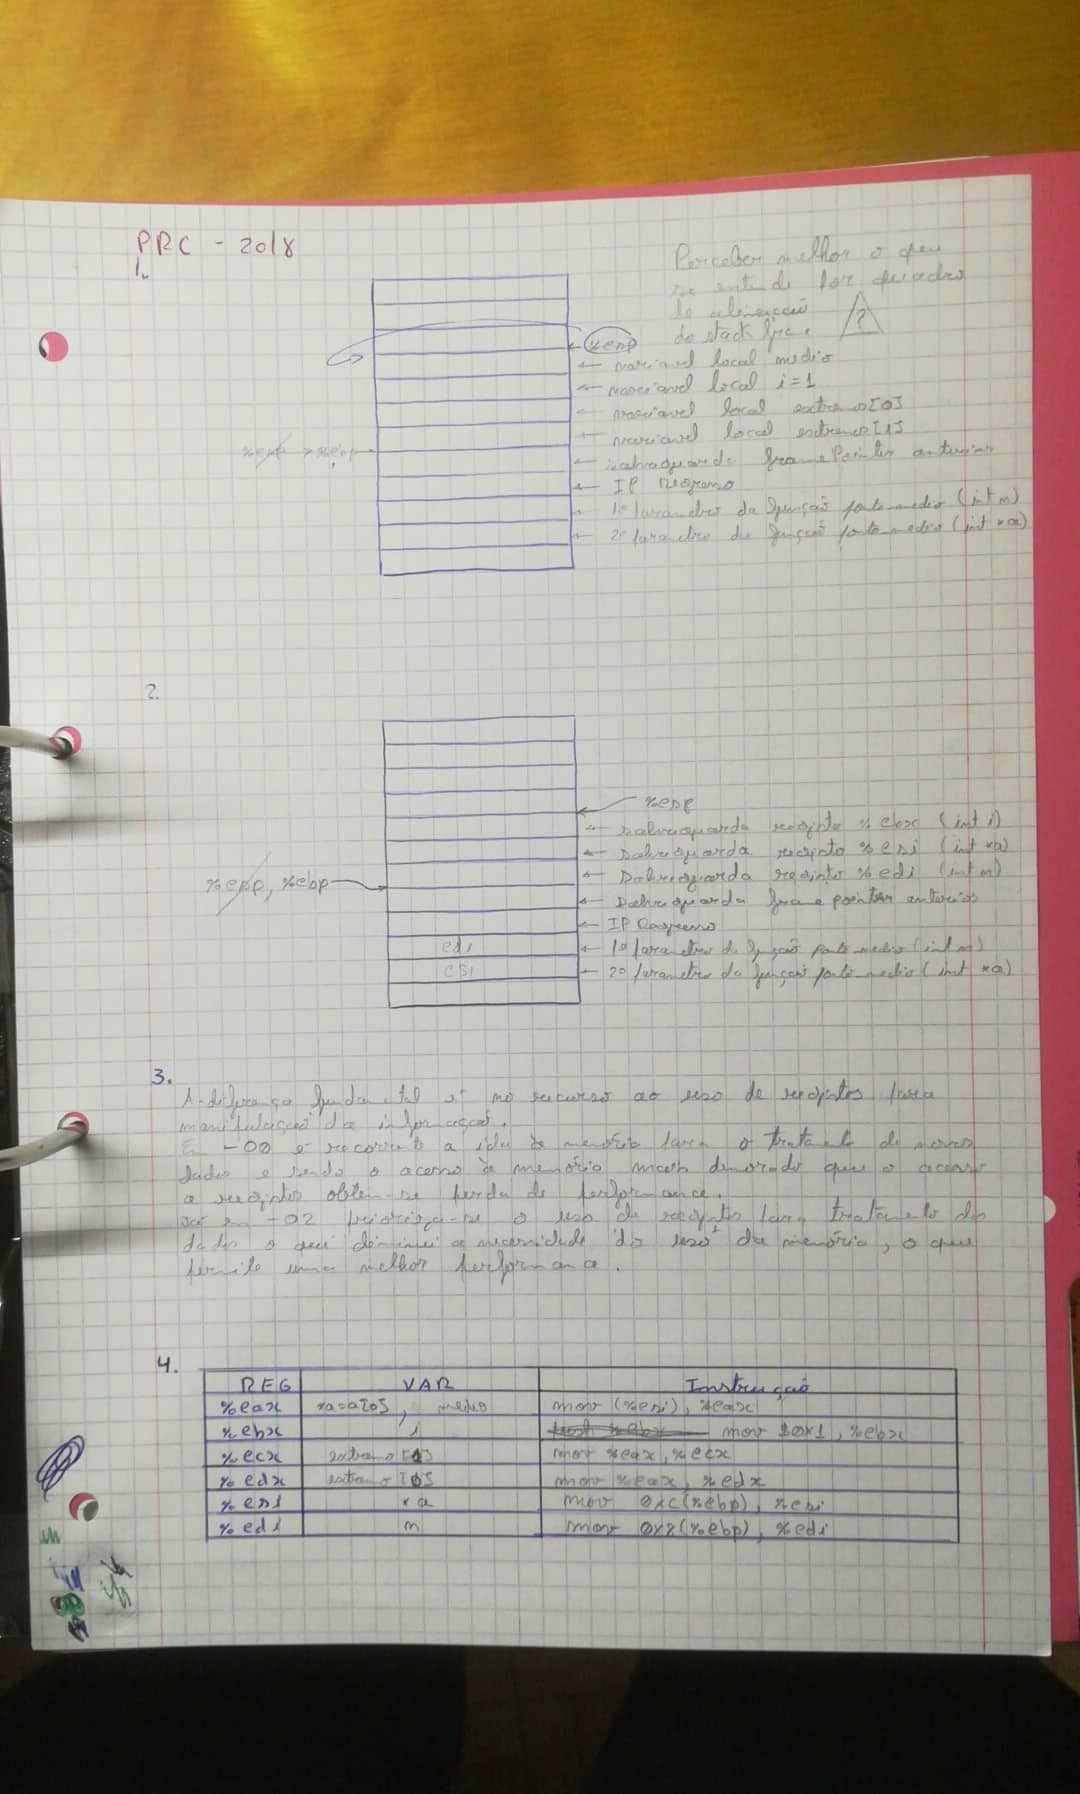 PRC - 2018
1.
Perceber melhor o que
se entende por quadro
de
do stack
?
%esp
variável local medio
variável local i=1
variável local extremos[0]
variável local extremos[1]
%esp %ebp
salvaguarda framePointer anterior
IP Regresso
1º parametro da função ponto_medio (int n)
2º parametro da função ponto_medio (int *a)
2.
%esp
salvaguarda registo %ebx (int i)
Salvaguarda registo %esi (int *a)
Salvaguarda registo %edi (int n)
%esp, %ebp
Salvaguarda frame pointer anterior
IP Regresso
edi
1º parametro da função ponto_medio (int n)
esi
2º parametro da função ponto_medio (int *a)
3.
A diferença fundamental é no recurso ao uso de registos para
manipulação da informação.
Em -O0 é recorrente a ida à memória para o tratamento de novos
dados e sendo o acesso à memória mais demorado que o acesso
a registos obtem-se perda de performance.
Já em -O2 prioriza-se o uso de registos para tratamento de
dados o que diminui a necessidade do uso da memória, o que
permite uma melhor performance.
4.
REG VAR Instrução
%eax *a=a[0], medio mov (%esi), %eax
%ebx i mov $0x1, %ebx
%ecx extremo [1] mov %eax, %ecx
%edx extremo [0] mov %eax, %edx
%esi *a mov 0xC(%ebp), %esi
%edi n mov 0x8(%ebp), %edi